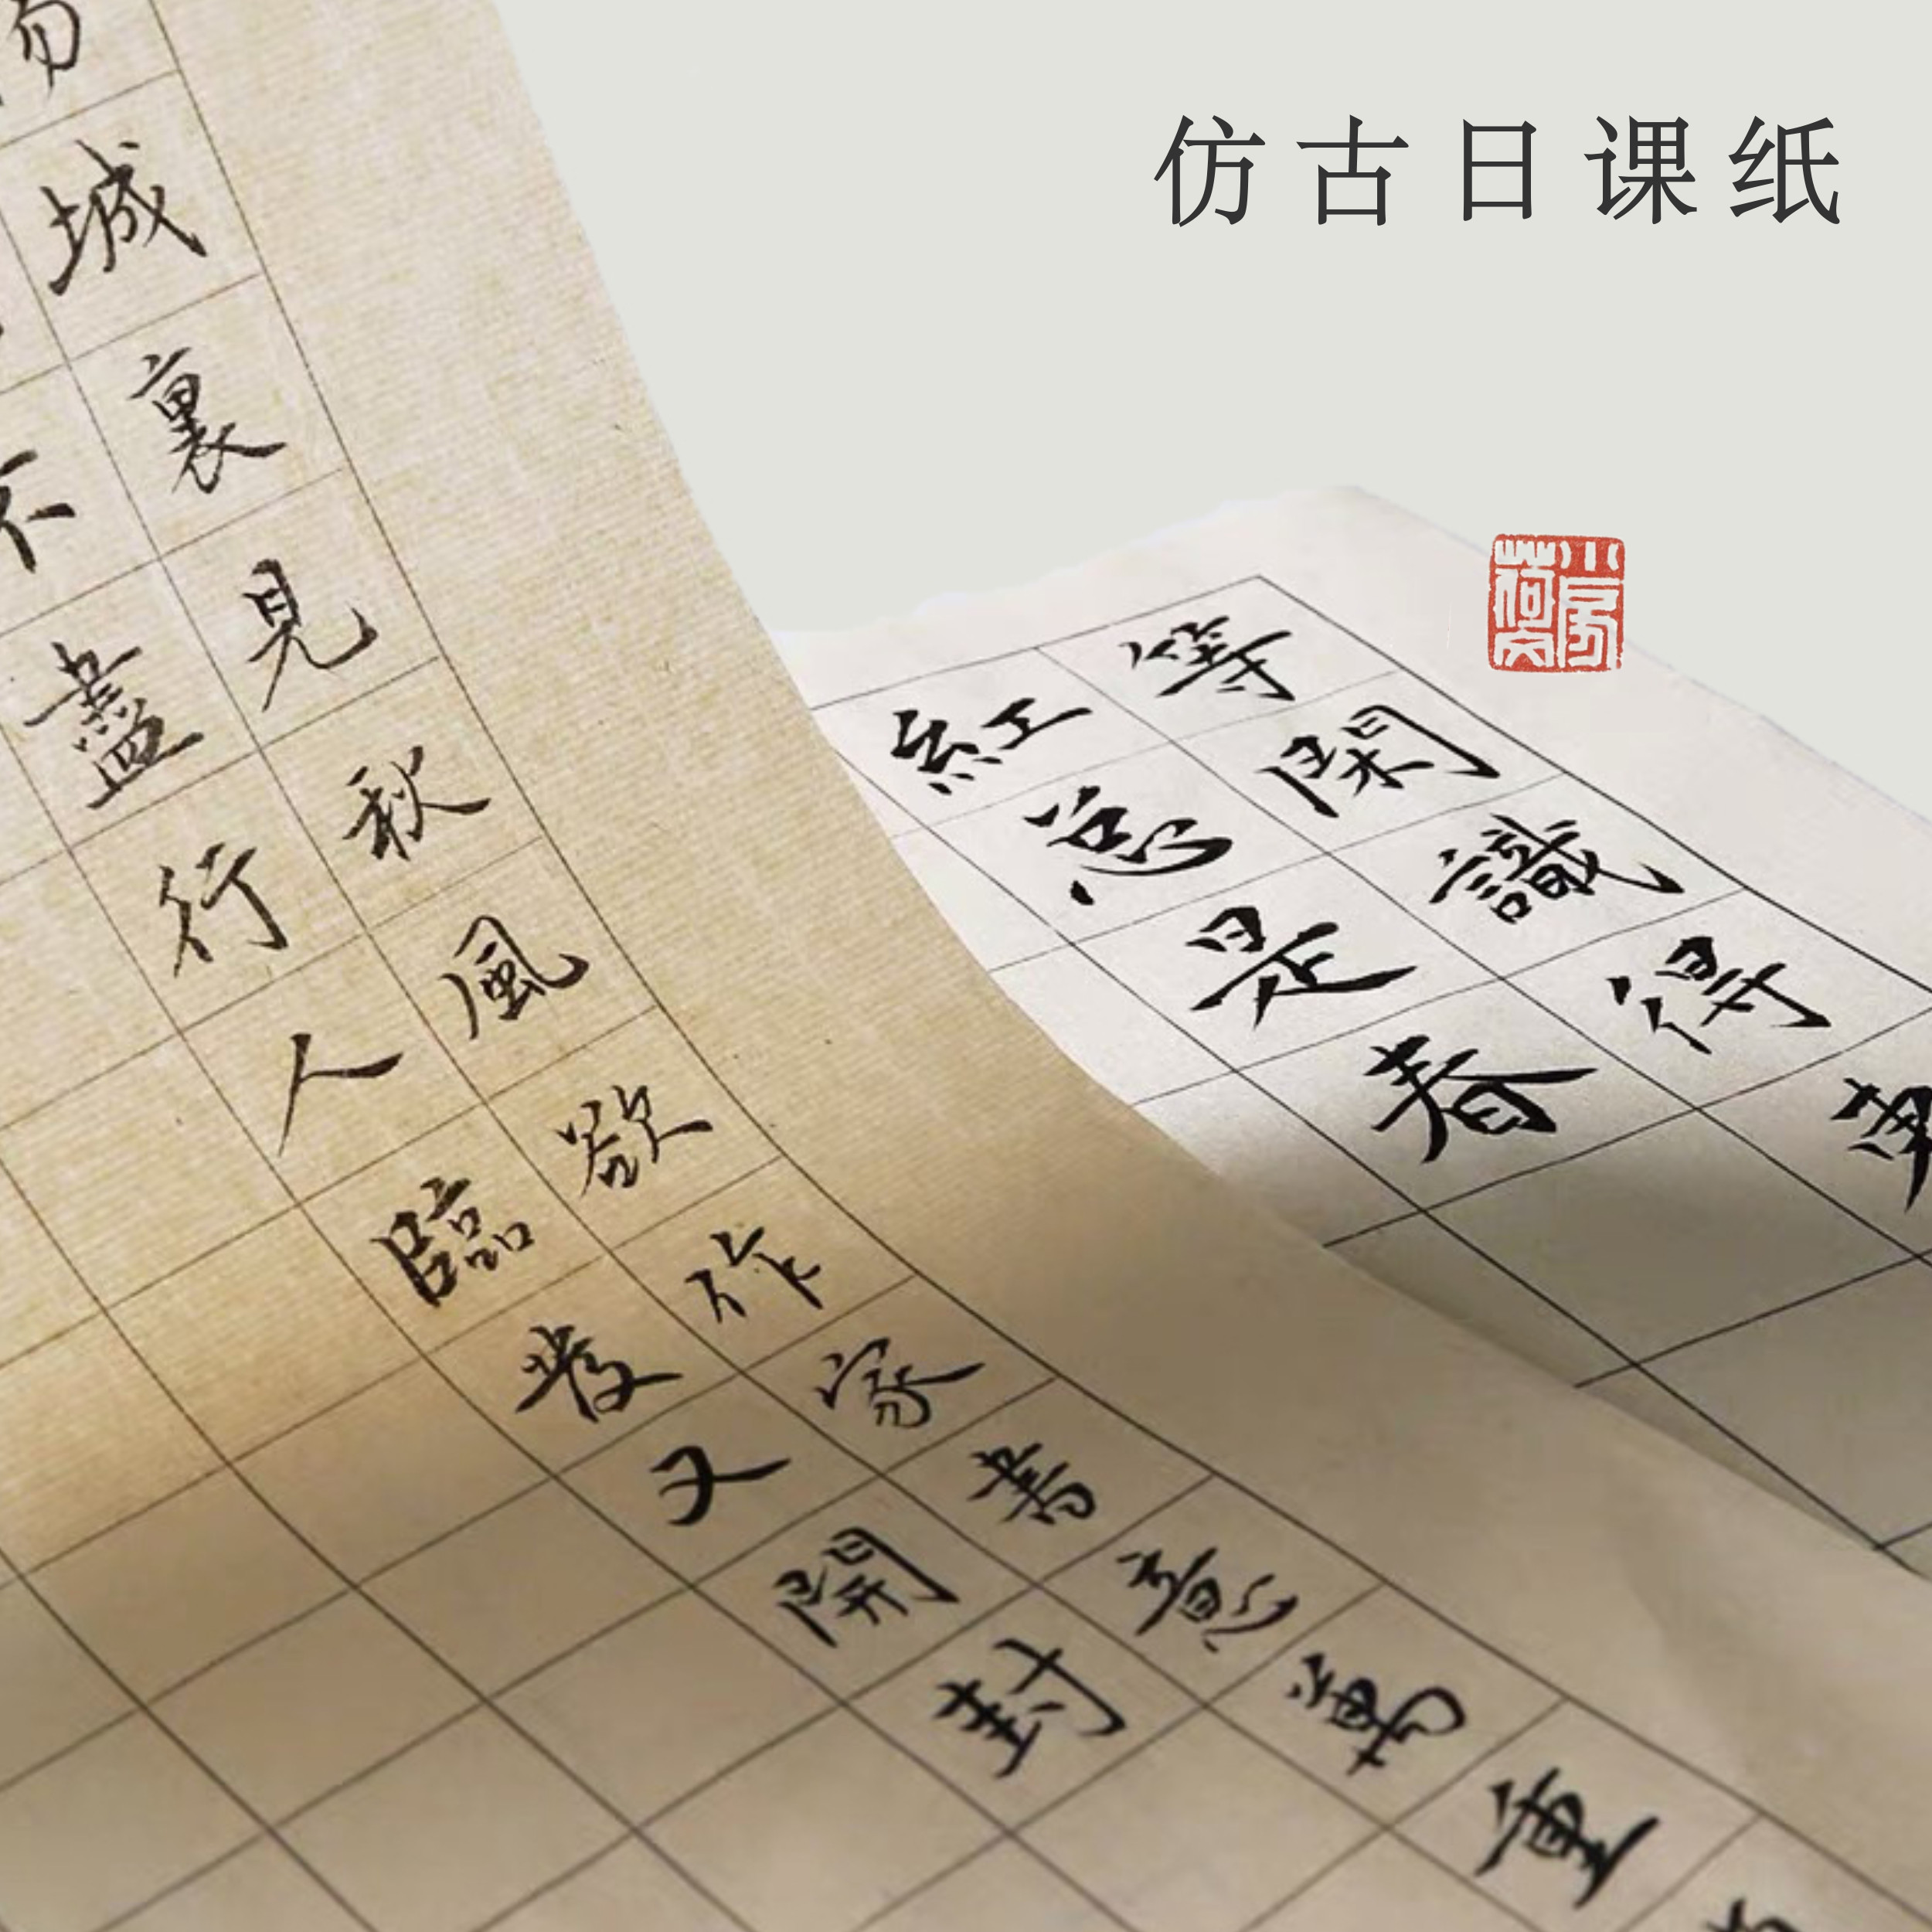 仿古日课纸
等閑識得東
紅总是春
城裏見秋風欲作家書意萬重
不盡行人臨發又開封